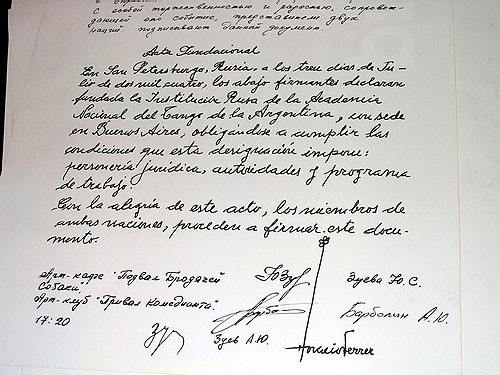 с особой торжественностью и радостью, сопровож-
дающей это событие, представители двух
наций подписывают данный документ.
Acta Fundacional
En San Petersburgo, Rusia, a los tres días de Ju-
lio de dos mil cuatro, los abajo firmantes declaran
fundada la Institución Rusa de la Academia
Nacional del Tango de la Argentina, con sede
en Buenos Aires, obligándose a cumplir las
condiciones que esta designación impone:
personería jurídica, autoridades y programa
de trabajo.
Con la alegría de este acto, los miembros de
ambas naciones, proceden a firmar este docu-
mento.
Арт-кафе "Подвал Бродячей
Собаки"
Арт-клуб "Привал Комедианта".
17:20
Зуева Ю. С.
Барболин А. Ю.
Зуев А.Ю.
Horacio Ferrer